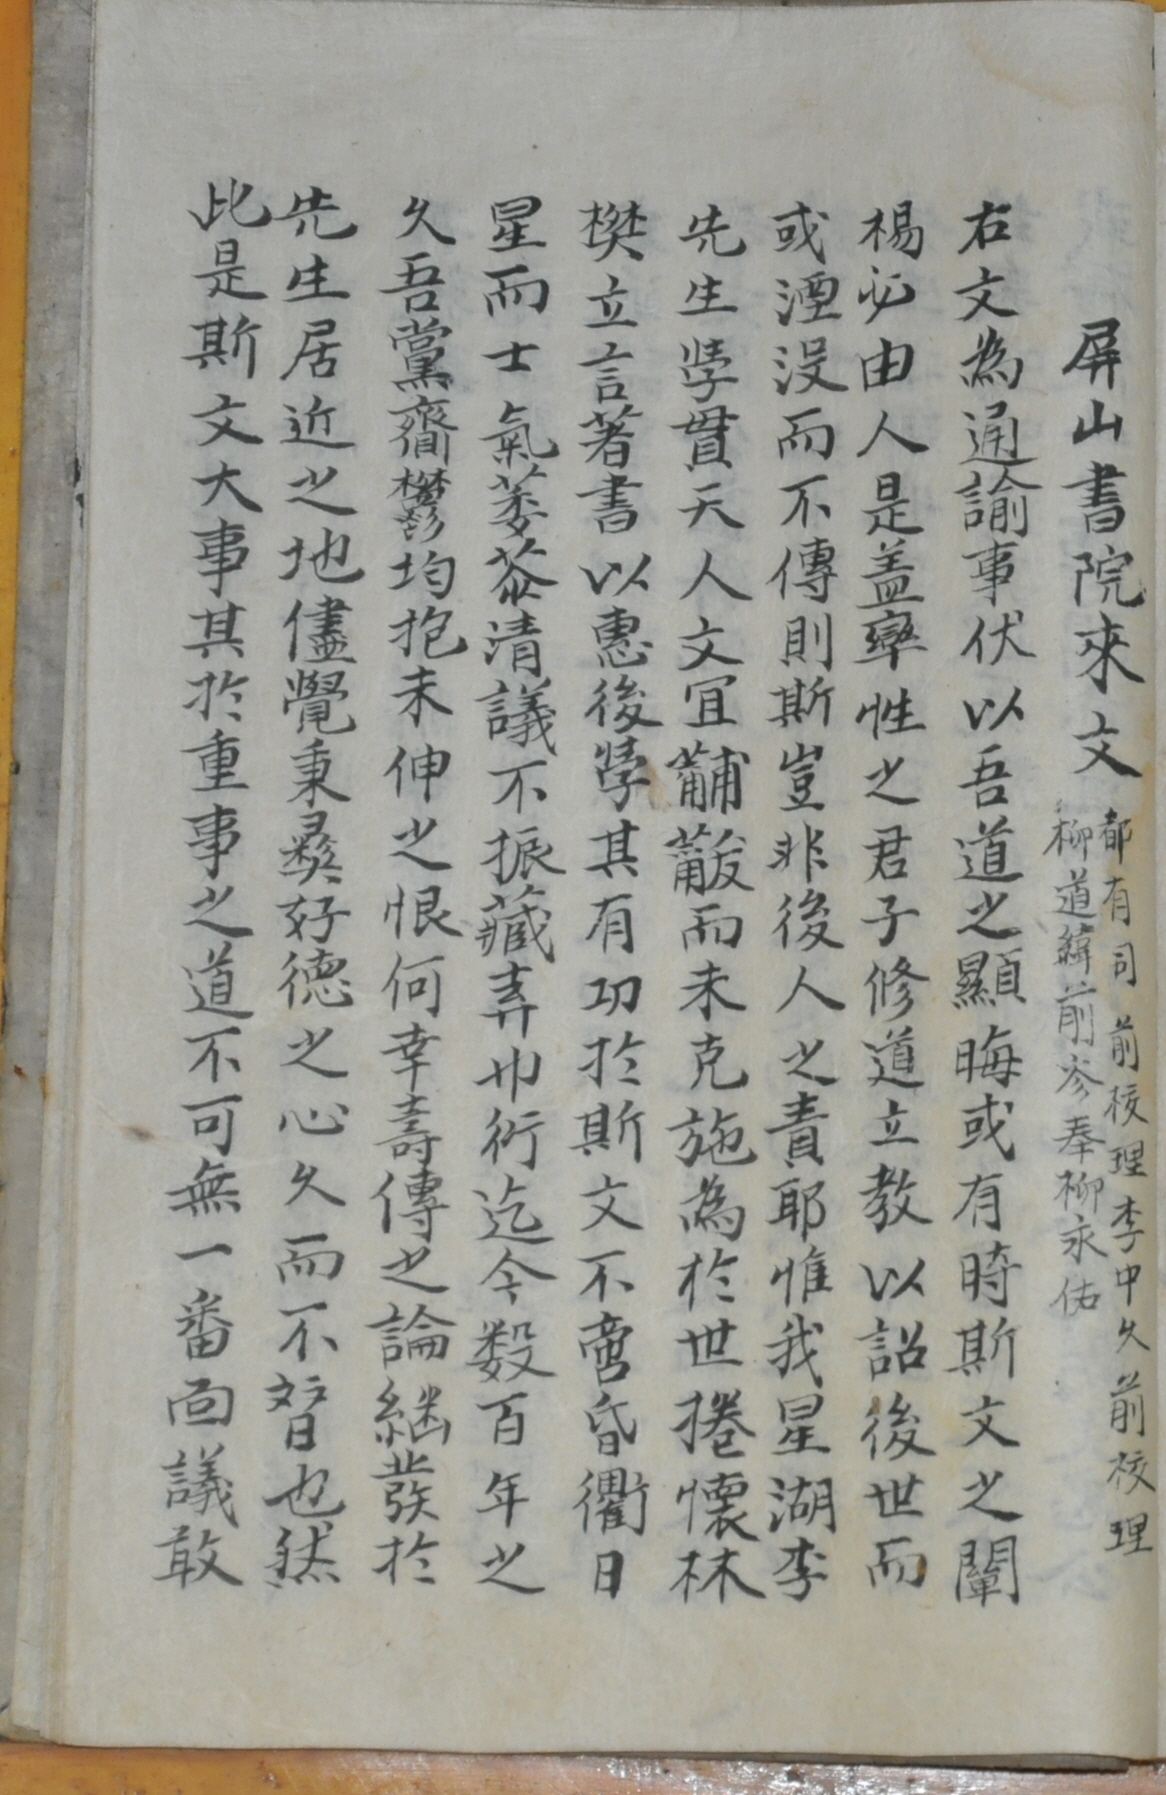 屏山書院來文 都有司 前校理李中久 前校理
柳道鏴 前參奉柳永佑
右文為通諭事伏以吾道之顯晦或有時斯文之闡
楊必由人是盖率性之君子修道立教以詔後世而
或湮沒而不傳則斯豈非後人之責耶惟我星湖李
先生學貫天人文宜黼黻而未克施為於世捲懷林
樊立言著書以惠後學其有功於斯文不啻昏衢日
星而士氣萎苶清議不振藏弆巾衍迄今數百年之
久吾黨齎鬱均抱未伸之恨何幸壽傳之論繼發於
先生居近之地儘覺秉彛好德之心久而不替也然
此是斯文大事其於重事之道不可無一番面議敢